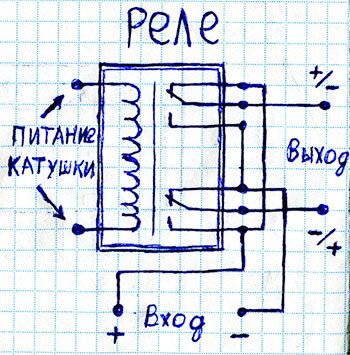 РЕЛЕ
+/-
ПИТАНИЕ
КАТУШКИ
ВЫХОД
-/+
+ ВХОД -